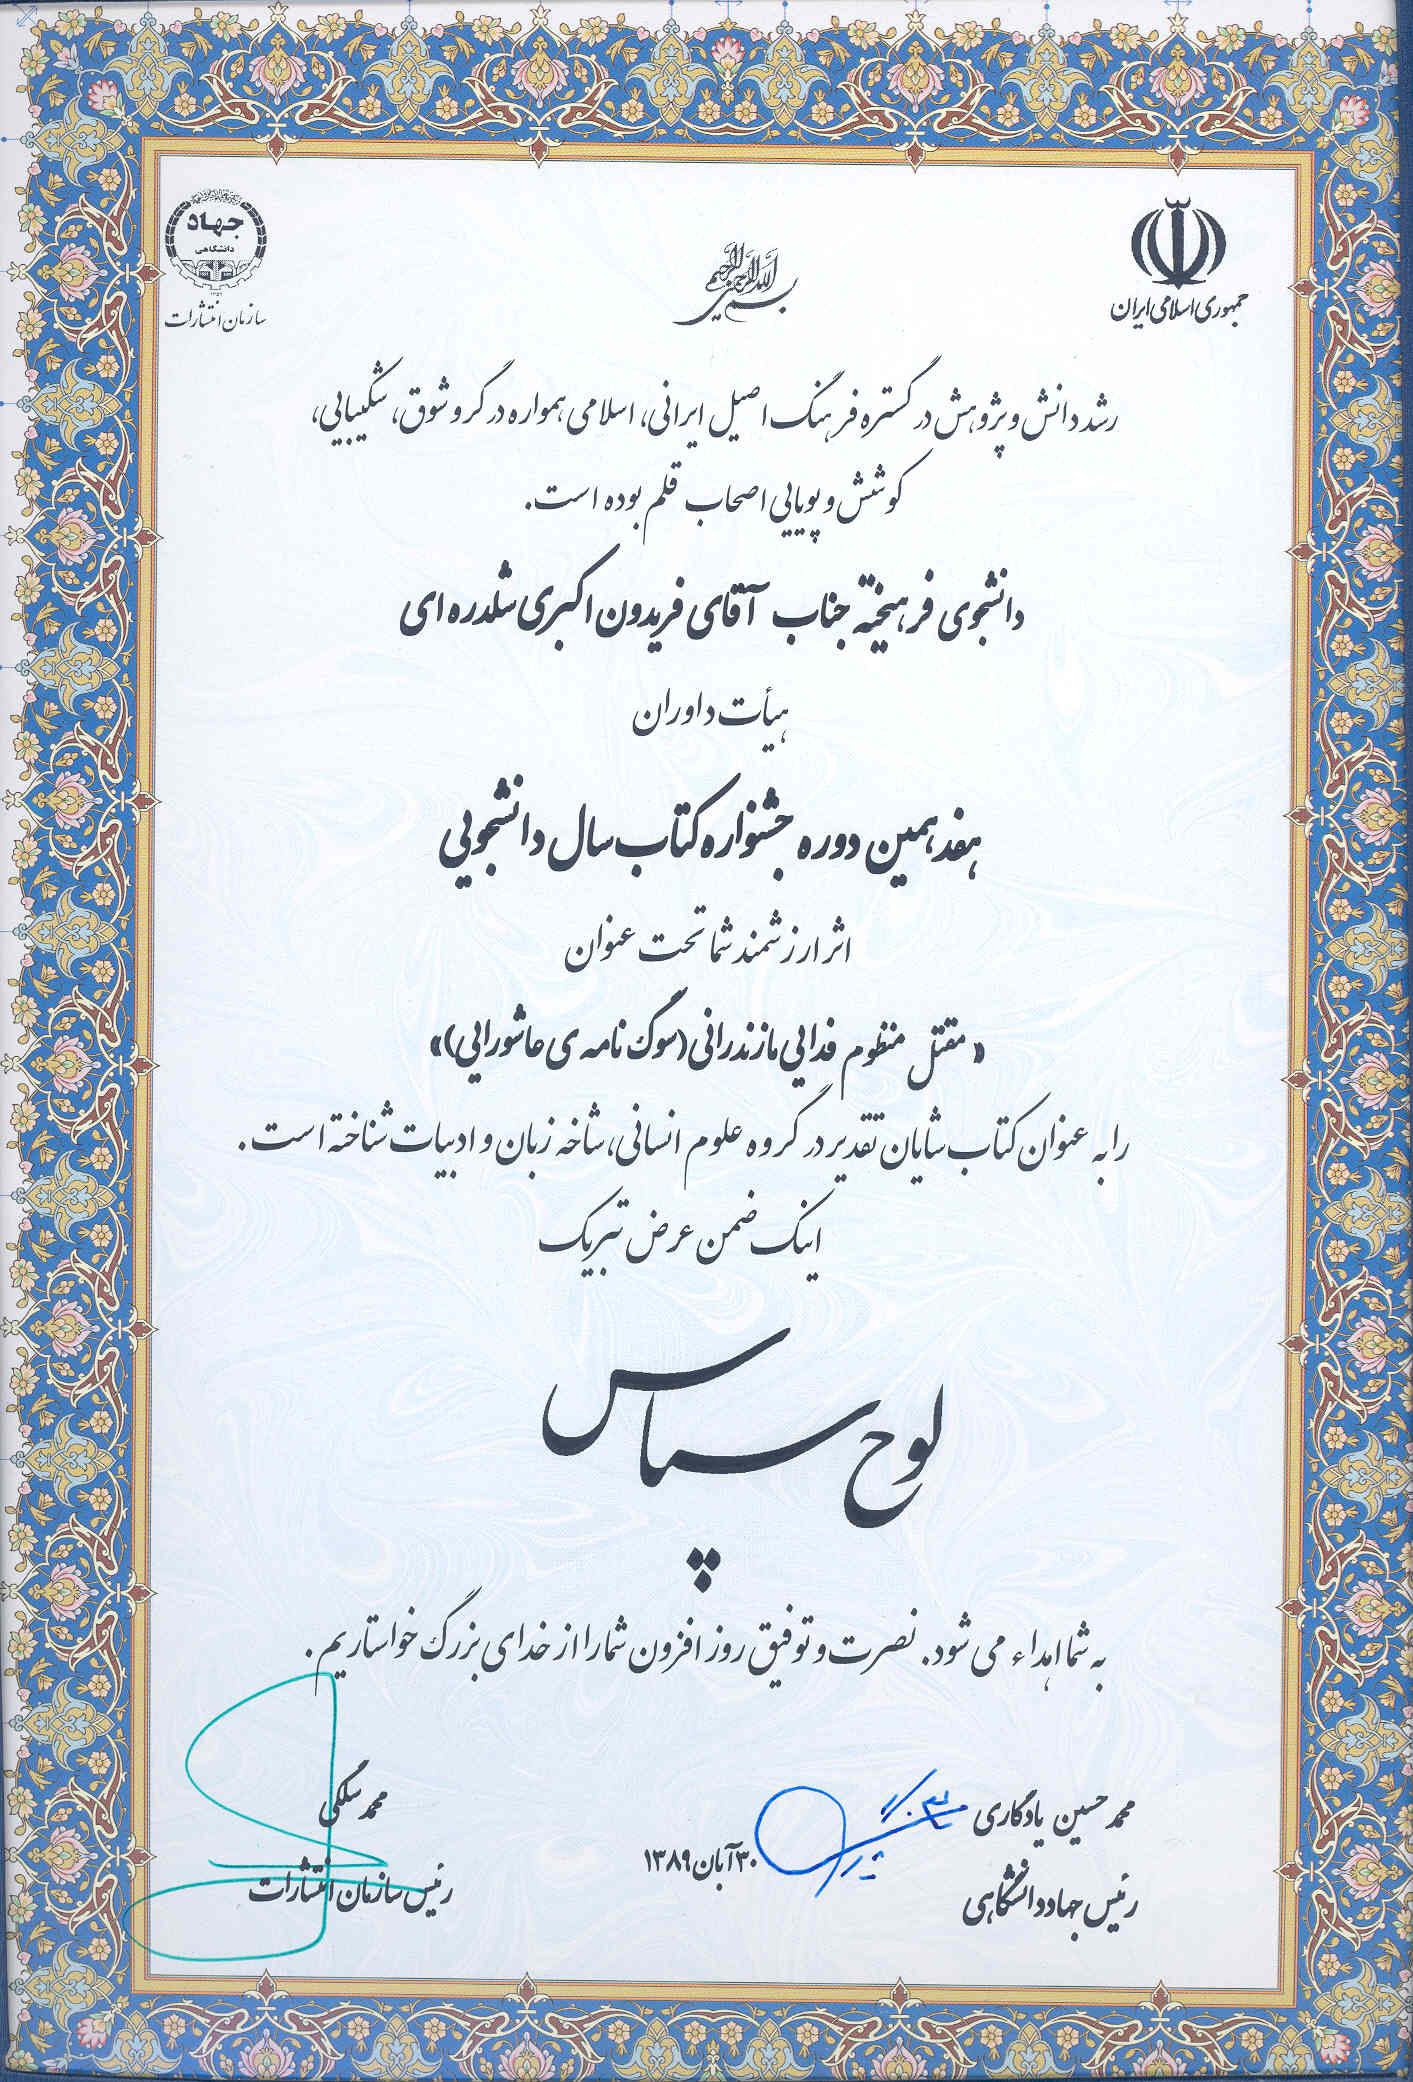 جمهوری اسلامی ایران
بسم الله الرحمن الرحیم
جهاد
دانشگاهی
سازمان انتشارات
رشد دانش و پژوهش در گستره فرهنگ اصیل ایرانی، اسلامی همواره در گرو شوق، شکیبایی،
کوشش و پویایی اصحاب قلم بوده است.
دانشجوی فرهیخته جناب آقای فریدون اکبری شلدره ای
هیأت داوران
هفدهمین دوره جشنواره کتاب سال دانشجویی
اثر ارزشمند شما تحت عنوان
«مقتل منظوم فدایی مازندرانی (سوگ نامه ی عاشورایی)»
را به عنوان کتاب شایان تقدیر در گروه علوم انسانی، شاخه زبان و ادبیات شناخته است.
اینک ضمن عرض تبریک
لوح سپاس
به شما اهداء می شود. نصرت و توفیق روز افزون شما را از خدای بزرگ خواستاریم.
محمد حسین یادگاری
رئیس جهاد دانشگاهی
۳۰ آبان ۱۳۸۹
محمد سلگی
رئیس سازمان انتشارات